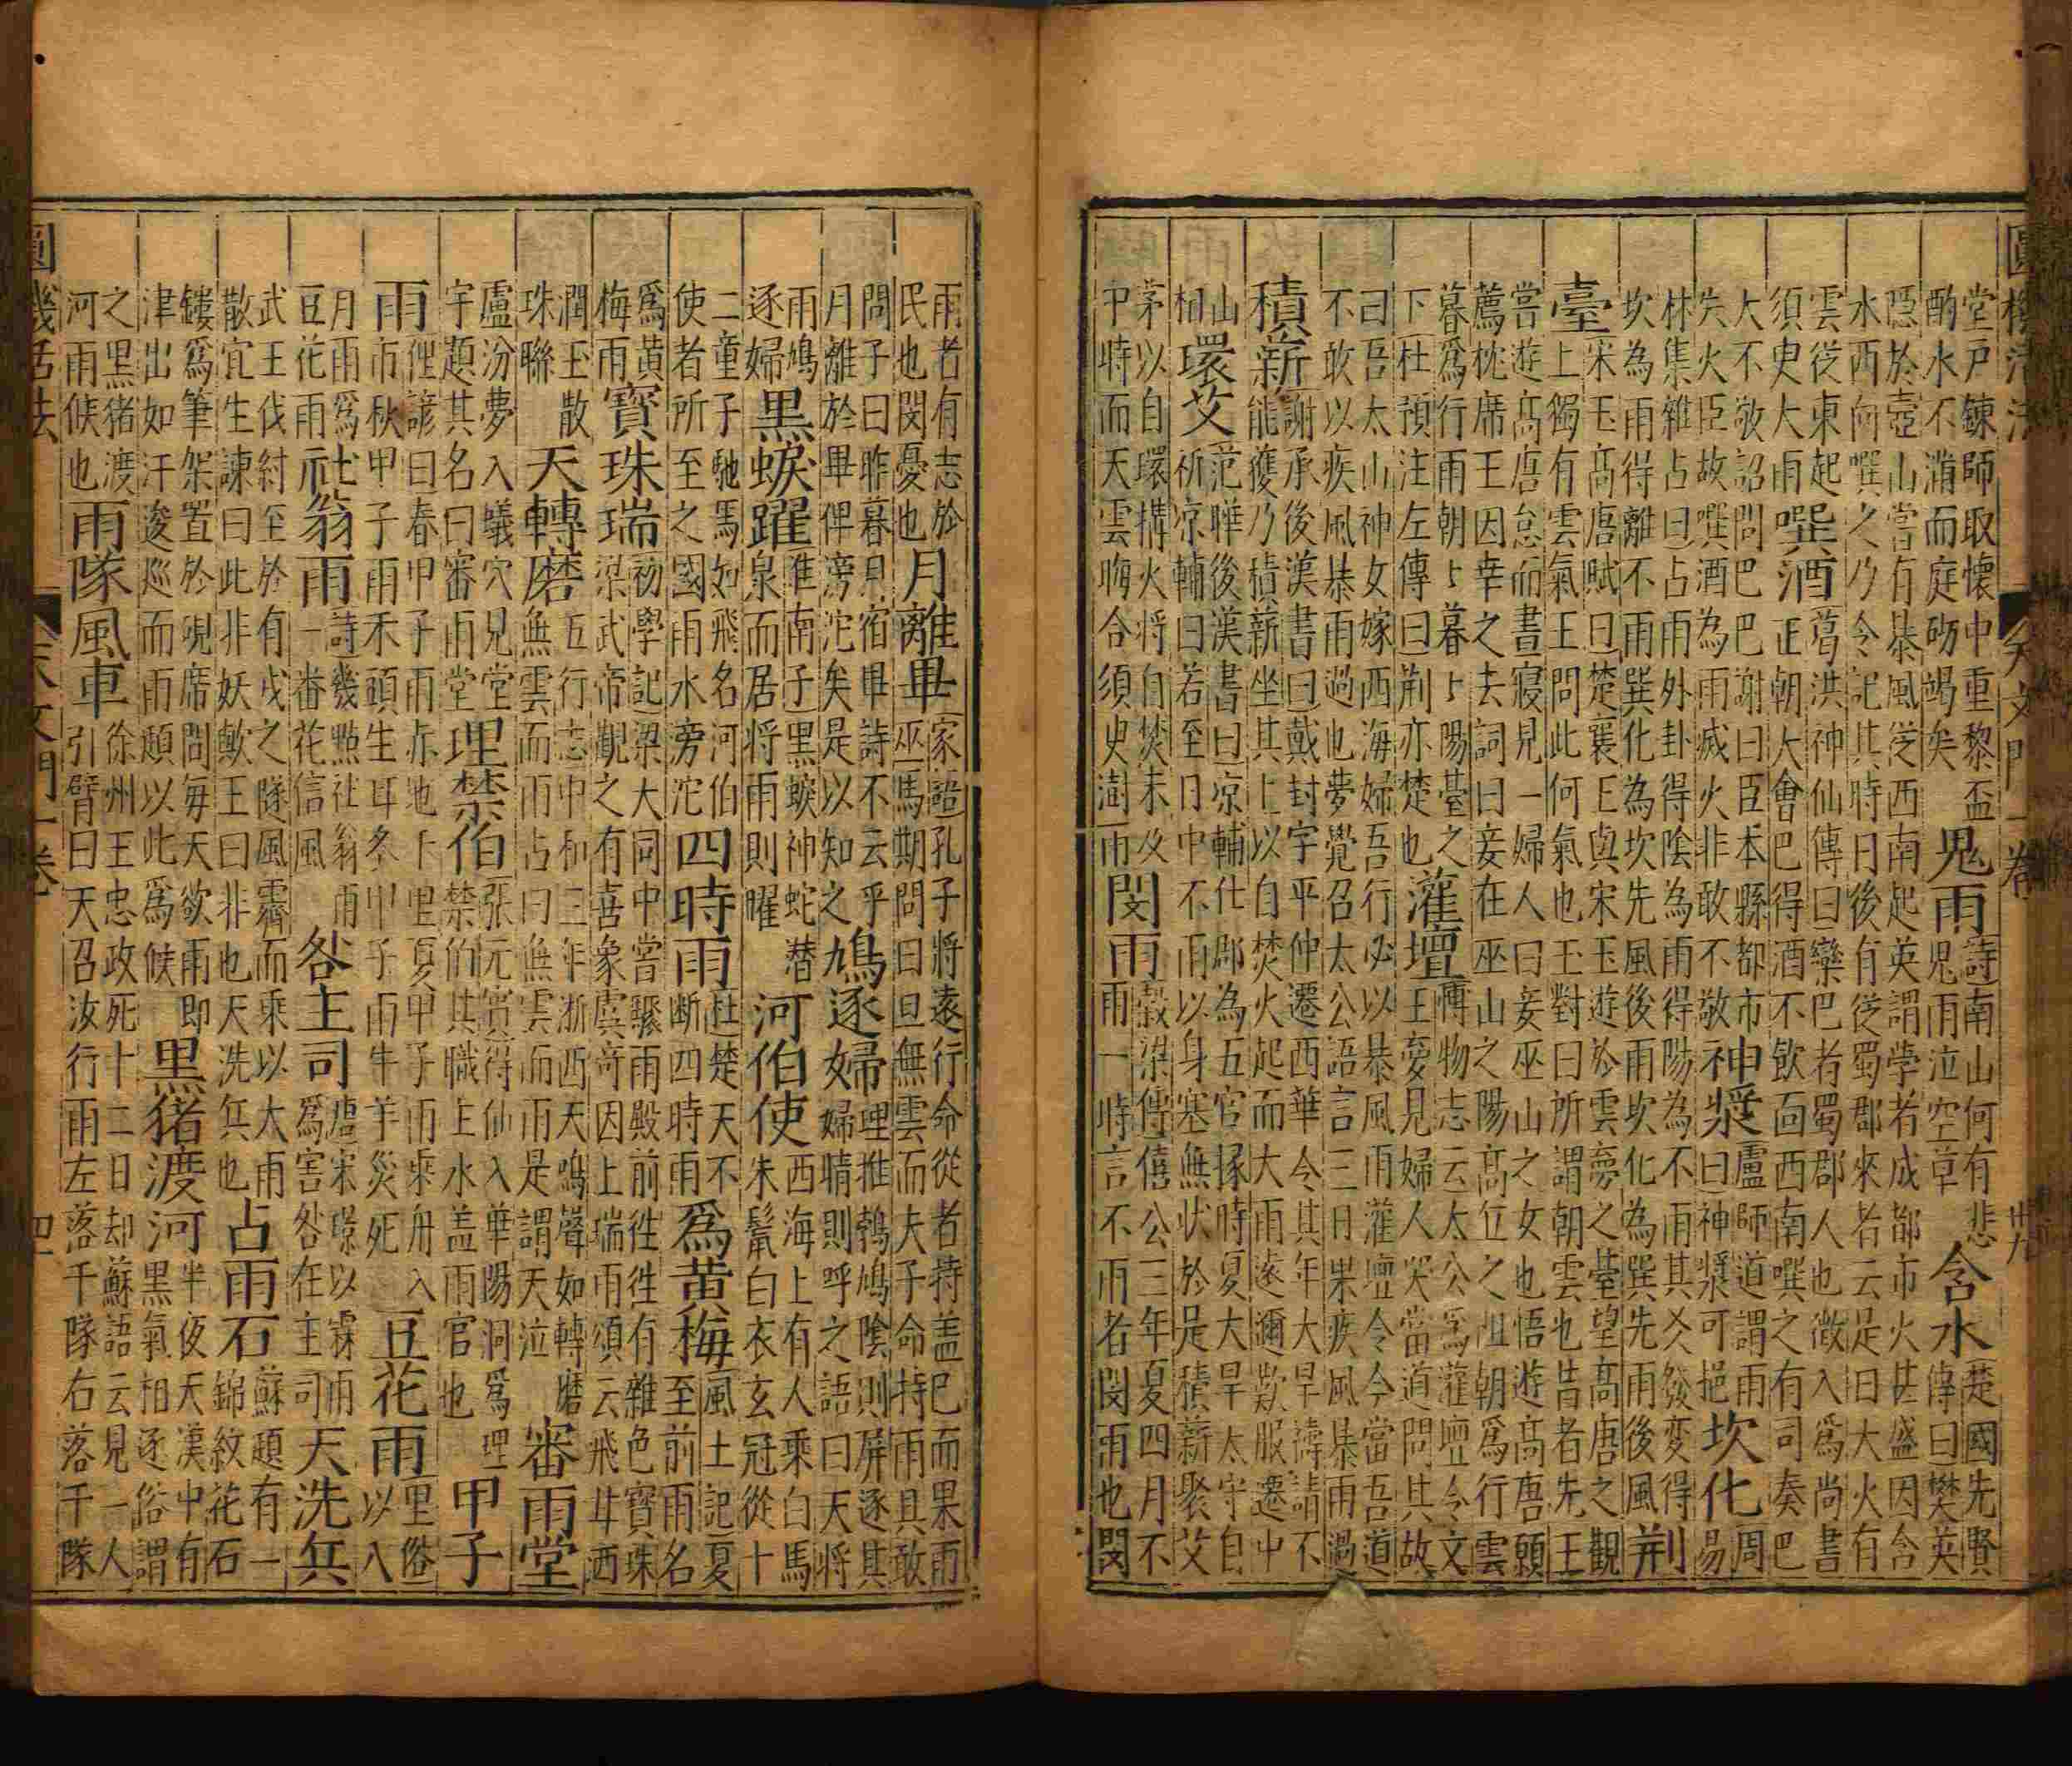 圓機活法 天文門一卷 卅九
堂戸鍊師取懷中重黎盃
酌水不濇而庭砌竭矣
鬼雨
詩南山何有悲
鬼雨洒泣空草
含水
楚國先賢
傳曰樊英
隱於壺山嘗有暴風從西南起英謂學者成都市火甚盛因含
水西向噀之乃令記其時日後有從蜀郡來者云是日大火有
雲從東起
須臾大雨
噀酒
葛洪神仙傳曰欒巴者蜀郡人也徵入爲尚書
正朝大會巴得酒不飲面西南噀之有司奏巴
大不敬詔問巴巴謝曰臣本縣都市
失火臣故噀酒為雨滅火非敢不敬
神漿
盧師道謂雨
曰神漿可挹
坎化
周
易
林集雜占曰占雨外卦得陰為雨得陽為不雨其爻發変得
坎為雨得離不雨巽化為坎先風後雨坎化為巽先雨後風
荆
臺
宋玉高唐賦曰楚襄王與宋玉遊於雲夢之臺望高唐之觀
上獨有雲氣王問此何氣也玉對曰所謂朝雲也昔者先王
嘗遊高唐怠而晝寢見一婦人曰妾巫山之女也悟遊高唐願
薦枕席王因幸之去詞曰妾在巫山之陽高丘之岨朝爲行雲
暮爲行雨朝々暮々陽臺之
下杜預注左傳曰荆亦楚也
灌壇
博物志云太公爲灌壇令文
王夢見婦人哭當道問其故
曰吾太山神女嫁西海婦吾行必以暴風雨灌壇令今當吾道
不敢以疾風暴雨過也夢覺召太公語言三日果疾風暴雨過
積薪
謝承後漢書曰戴封字平仲遷西華令其年大旱禱請不
能獲乃積薪坐其上以自焚火起而大雨遠邇歎服遷中
山
相
環艾
范曄後漢書曰凉輔仕郡為五官掾時夏大旱太守自
祈凉輔曰若至日中不雨以身塞無状於是積薪聚艾
茅以自環搆火將自焚未及
中時而天雲晦合須臾澍雨
閔雨
穀梁傳僖公三年夏四月不
雨一時言不雨者閔雨也閔
雨者有志於
民也閔憂也
月離畢
家語孔子將遠行命從者持盖巳而果雨
巫馬期問曰旦無雲而夫子命持雨具敢
問子曰昨暮月宿畢詩不云乎
月離於畢俾滂沱矣是以知之
鳩逐婦
埋雅鵓鳩陰則屏逐其
婦晴則呼之語曰天將
雨鳩
逐婦
黒蜧躍
淮南子黑蜧神蛇潜
泉而居將雨則曜
河伯使
西海上有人乘白馬
朱鬣白衣玄冠從十
二童子馳馬如飛名河伯
使者所至之國雨水滂沱
四時雨
杜楚天不
断四時雨
爲黄梅
風土記夏
至前雨名
爲黄
梅雨
寳珠瑞
初學記梁大同中嘗驟雨殿前徃徃有雜色寳珠
梁武帝覩之有喜象虞寄因上瑞雨頌云飛斗西
潤玉散
珠聯
天轉磨
五行志中和三年浙西天鳴聲如轉磨
無雲而雨占曰無雲而雨是謂天泣
審雨堂
盧汾夢入蟻穴見堂
宇題其名曰審雨堂
理禁伯
張元賔得仙入華陽洞爲理
禁伯其職主水盖雨官也
甲子
雨
俚諺曰春甲子雨赤地千里夏甲子雨乘舟入
市秋甲子雨禾頭生耳冬甲子雨牛羊災死
豆花雨
里俗
以八
月雨爲
豆花雨
社翁雨
詩幾點社翁雨
一番花信風
咎主司
唐宋璟以霖雨
爲害咎在主司
天洗兵
武王伐紂至於有戎之隧風霽而乘以大雨
散宜生諫曰此非妖歟王曰非也天洗兵也
占雨石
蘇題有一
錦紋花石
鏤爲筆架置於硯席間每天欲雨即
津出如汗逡巡而雨頗以此爲候
黒猪渡河
半夜天漢中有
黒氣相逐俗謂
之黒猪渡
河雨候也
雨隊風車
徐州王忠政死十二日却蘇語云見一人
引臂曰天召汝行雨左落千隊右落千隊
圓機活法 天文門一卷 四一